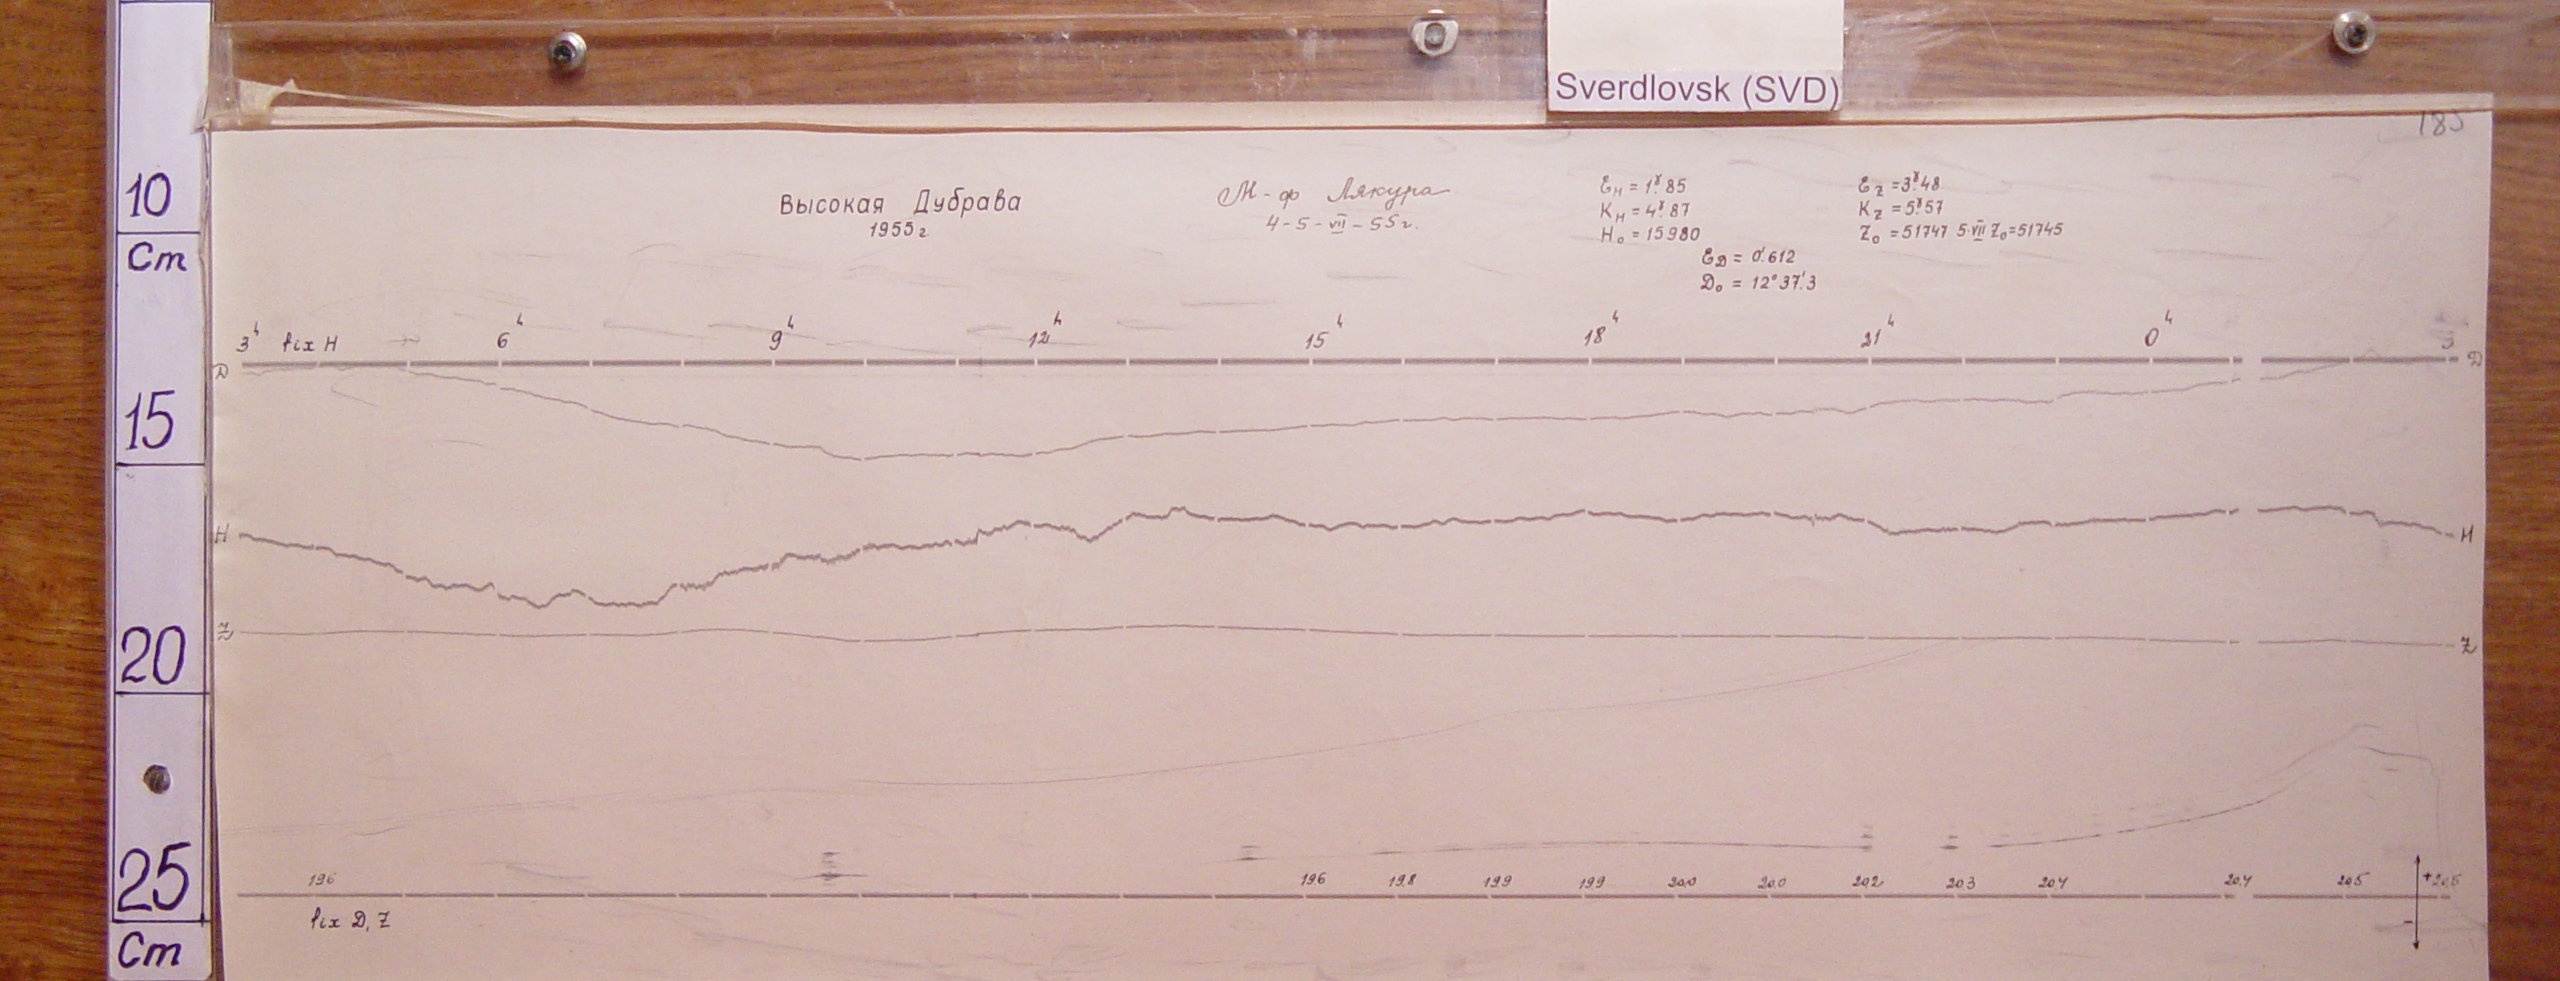 Sverdlovsk (SVD)
10
Cm
15
20
25
Cm
Высокая Дубрава
1955 г.
М-ф Лякура
4-5-VII-55г.
Ɛн = 1ˠ.85
Kн = 4ˠ.87
H₀ = 15980
Ɛz = 3ˠ.48
Kz = 5ˠ.57
Z₀ = 51747 5.VII Z₀=51745
ƐD = 0'.612
D₀ = 12°37'.3
3ʰ fix H 6ʰ 9ʰ 12ʰ 15ʰ 18ʰ 21ʰ 0ʰ 3
D D
H H
Z Z
19.6 19.6 19.8 19.9 19.9 20.0 20.0 20.2 20.3 20.4 20.4 20.5 + 20.5
fix D, Z -